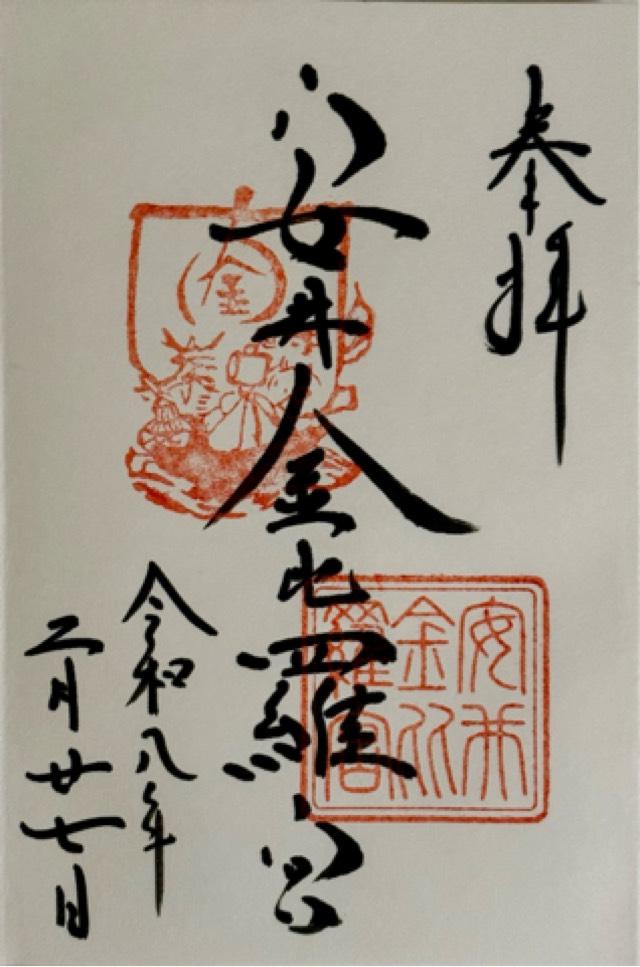 奉拝
安井金比羅宮
令和八年
二月廿七日
金
安井
金比
羅宮